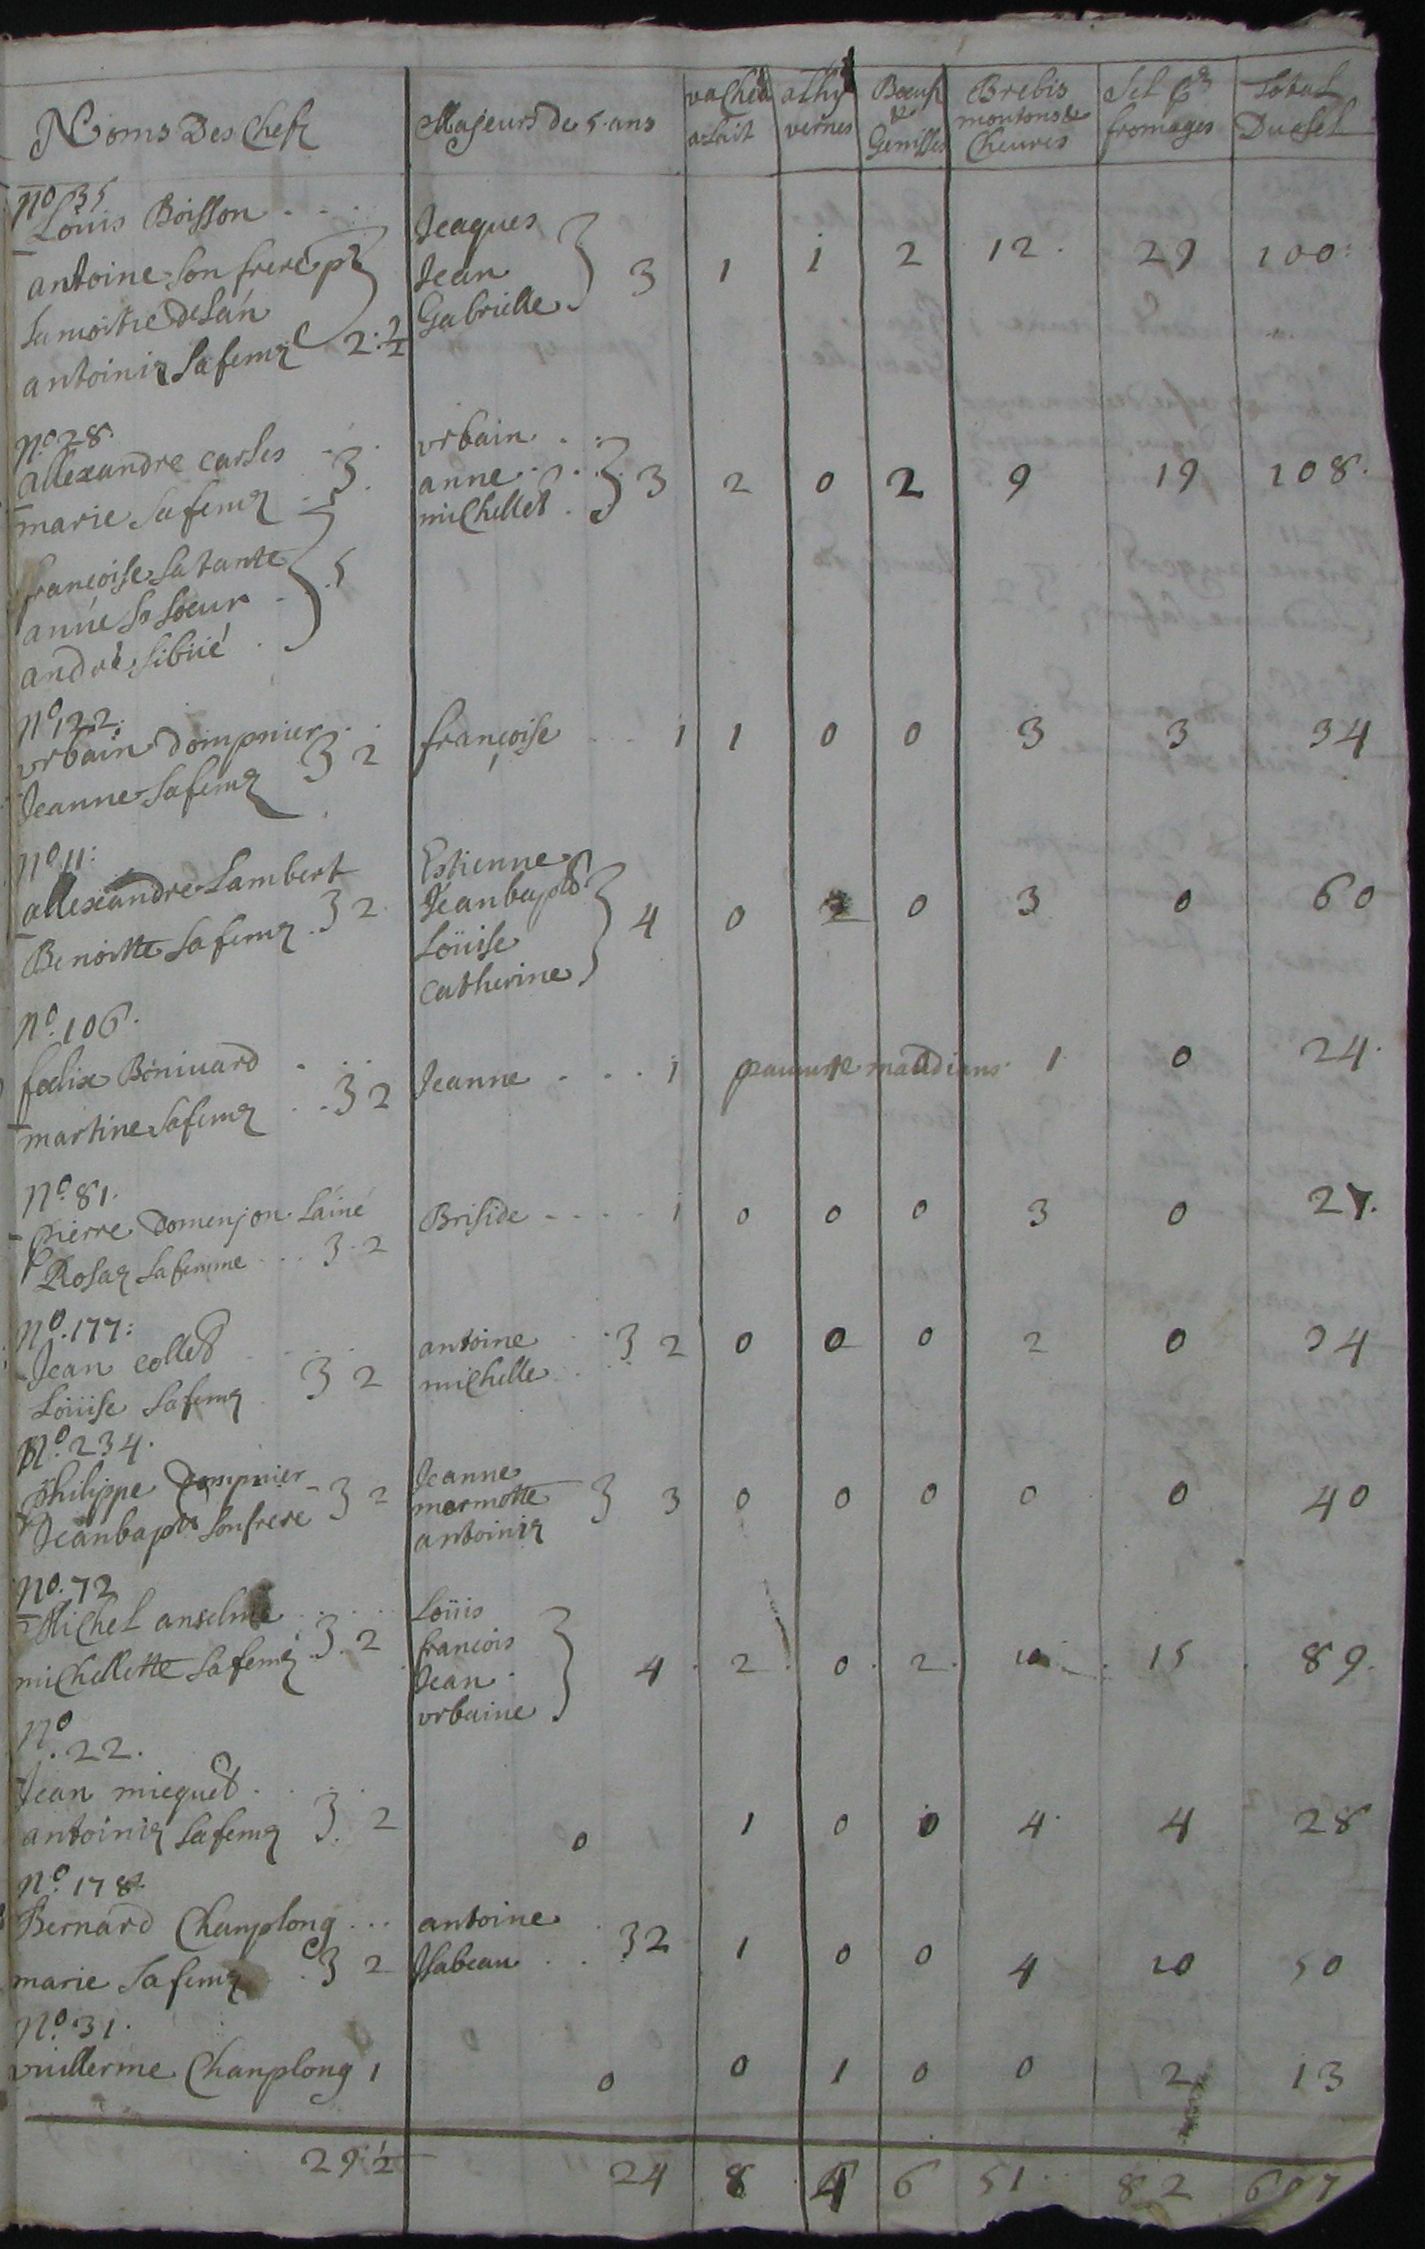 Noms Des Chefz | Majeurs de 5 ans | vaches a lait | athy vernes | Boeufz & Genisses | Brebis moutons & Cheures | Sel pr fromages | total Du Sel
No 35
Louis Boisson . . . | Jeaques
antoine son frere pr | Jean } 3 | 1 | 1 | 2 | 12. | 29 | 100:
la moitie de lan | Gabrielle
antoinia sa feme 2:½
No 28.
allexandre Carles . . . | vrbain . .
marie sa feme . 3. | anne . . . } 3 | 2 | 0 | 2 | 9 | 19 | 108.
michellet .
françoise sa tante
anne sa soeur } 5
andre sibué .
No 122:
vrbain Dompnier . . | françoise . . . 1 | 1 | 0 | 0 | 3 | 3 | 34
Jeanne sa feme 3 2
No 11:
allexandre Lambert | Estienne
Benoitte sa feme . 3 2. | Jean bapte } 4 | 0 | 2 | 0 | 3 | 0 | 60
Loüise
Catherine
No. 106.
foelix Boniuard . . . | Jeanne . . . 1 | pauure mandians | 1 | 0 | 24.
martine sa feme . . 3 2
No. 81.
pierre Domenjon Lainé | Briside - . . . . 1 | 0 | 0 | 0 | 3 | 0 | 27.
Rosaz sa femme . . . 3 . 2
No. 177:
Jean Collet . . . | antoine . . 3 2 | 0 | 0 | 0 | 2 | 0 | 34
Loüise sa feme 3 2 | michelle .
No. 234.
philippe Dompnier - 3 2 | Jeanne
Jean bapte son frere | marmotte } 3 | 0 | 0 | 0 | 0 | 0 | 40
antoinia
No. 72
Michel anselme . . . . | Loüis
michellette sa feme . 3 . 2 | francois } 4 . | 2 . | 0 . | 2 . | 10 . | 15 . | 89.
Jean .
vrbaine
No
. 22.
Jean micquet . . .
antoinia sa feme 3. 2 | 0 | 1 | 0 | 0 | 4. | 4 | 28
No. 178.
Bernard Chanplong . . . | antoine .
marie sa feme . 3 2 | Isabeau . . 3 2 | 1 | 0 | 0 | 4 | 10 | 50
No. 31.
vuillerme Chanplong 1 | 0 | 0 | 1 | 0 | 0 | 2 | 13
29 ½ | 24 | 8 | 4 | 6 | 51 . . | 82 | 607